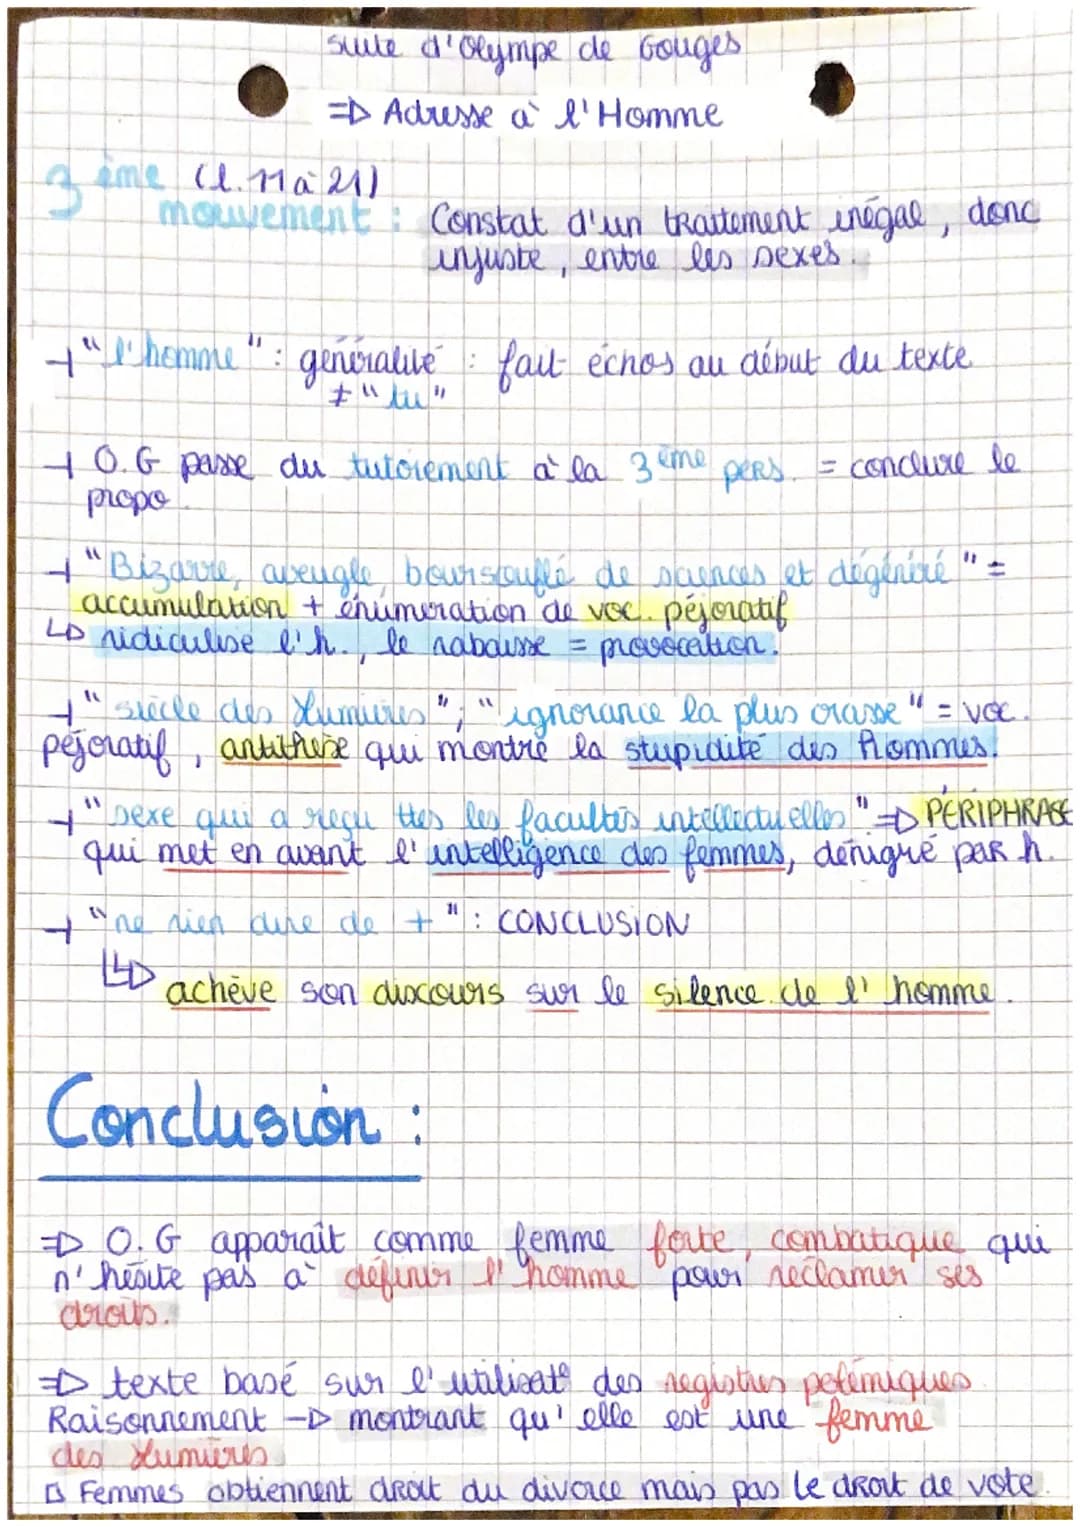 suite d'Olympe de Gouges
=> Adresse à l'Homme
3ème (l. 11 à 21)
mouvement : Constat d'un traitement inégal, donc
injuste, entre les sexes.
→ "l'homme" : généralité : fait échos au début du texte
≠ "tu"
→ O.G passe du tutoiement à la 3ème pers. = conclure le
propo.
→ "Bizarre, aveugle, boursouflé de sciences et dégénéré" =
accumulation + énumération de voc. péjoratif
↳ ridiculise l'h., le rabaisse = provocation.
→ "siècle des Lumières", "ignorance la plus crasse" = voc.
péjoratif, antithèse qui montre la stupidité des Hommes.
→ "sexe qui a reçu ttes les facultés intellectuelles" => PÉRIPHRASE
qui met en avant l'intelligence des femmes, dénigré par h.
→ "ne rien dire de +" : CONCLUSION
↳ achève son discours sur le silence de l'homme.
Conclusion :
=> O.G apparaît comme femme forte, combatique qui
n'hésite pas à définir l'homme pour réclamer ses
droits.
=> texte basé sur l'utilisat° des registres polémiques
Raisonnement → montrant qu'elle est une femme
des Lumières
↳ Femmes obtiennent droit du divorce mais pas le droit de vote.